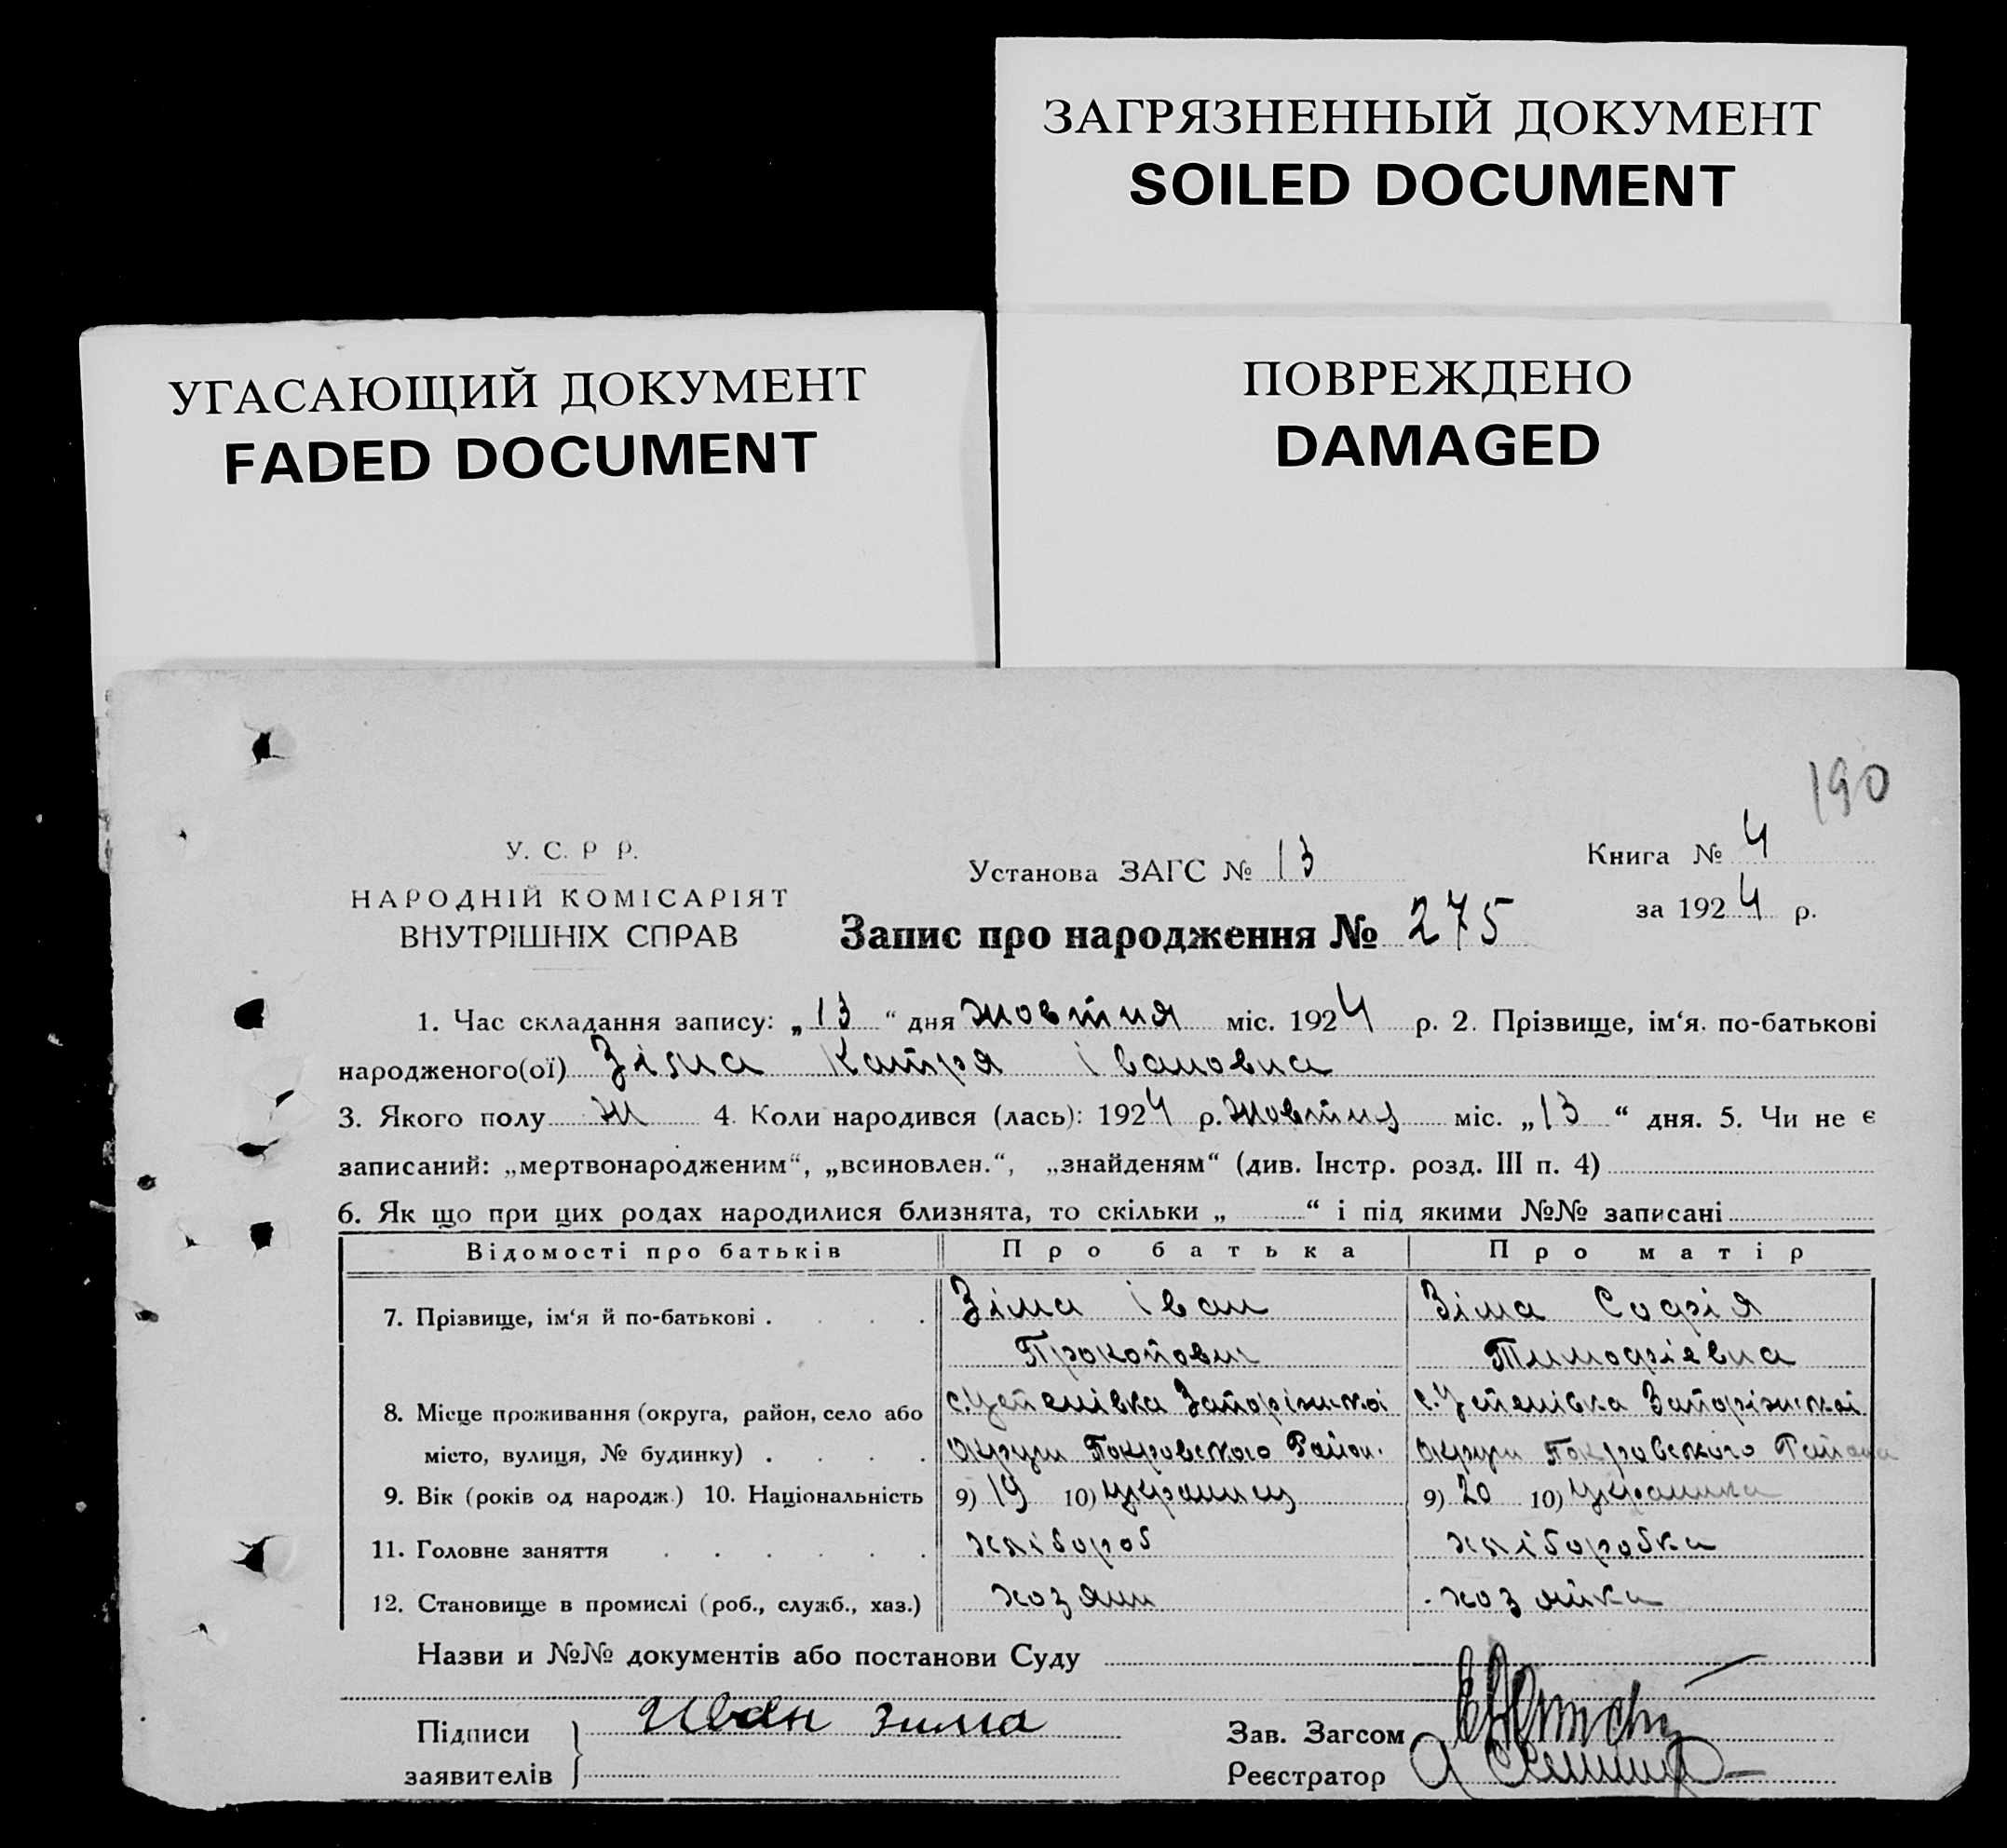 ЗАГРЯЗНЕННЫЙ ДОКУМЕНТ
SOILED DOCUMENT
УГАСАЮЩИЙ ДОКУМЕНТ
FADED DOCUMENT
ПОВРЕЖДЕНО
DAMAGED
190
У. С. Р Р.
НАРОДНІЙ КОМІСАРІЯТ
ВНУТРІШНІХ СПРАВ
Установа ЗАГС № 13
Книга № 4
за 1924 р.
Запис про народження № 275
1. Час складання запису: „13“ дня жовтня міс. 1924 р. 2. Прізвище, ім‘я. по-батькові
народженого(ої) Зіма Катря Івановна
3. Якого полу ж 4. Коли народився (лась): 1924 р. жовтня міс. „13“ дня. 5. Чи не є
записаний: „мертвонародженим“, „всиновлен.“, „знайденям“ (див. Інстр. розд. III п. 4)
6. Як що при цих родах народилися близнята, то скільки „ “ і під якими №№ записані
Відомості про батьків Про батька Про матір
7. Прізвище, ім‘я й по-батькові . . . . Зіма Іван Зіма Софія
Прокопович Тимофієвна
8. Місце проживання (округа, район, село або с. Успенівка Запоріжкої с. Успенівка Запоріжкої
місто, вулиця, № будинку) . . . . Округи Покровского Район. Округи Покровского Района
9. Вік (років од народж.) 10. Національність 9) 19 10) Украинец 9) 20 10) Украинка
11. Головне заняття . . . . . . хлібороб хліборобка
12. Становище в промислі (роб., служб., хаз.) хозяин хозяйка
Назви и №№ документів або постанови Суду
Підписи Иван Зима Зав. Загсом
заявителів Реєстратор